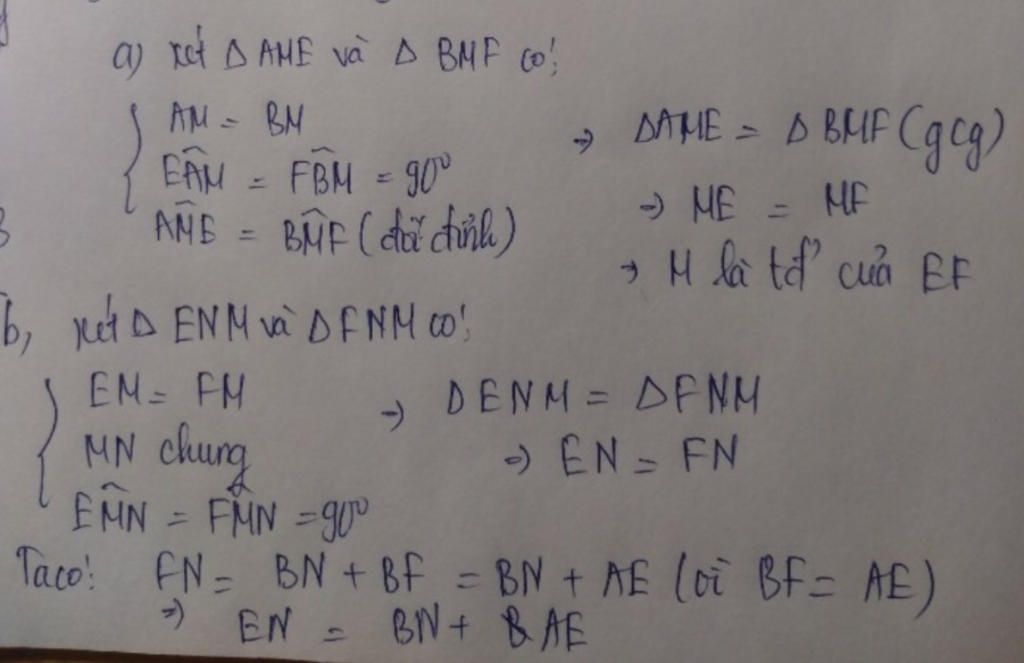 a) xét Δ AME và Δ BMF có:
AM = BM
EÂM = FB̂M = 90⁰
AM̂E = BM̂F (đối đỉnh)
→ ΔAME = Δ BMF (gcg)
→ ME = MF
→ M là tđ' của EF
b, xét Δ ENM và Δ FNM có:
EM = FM
MN chung
EM̂N = FM̂N = 90⁰
→ ΔENM = ΔFNM
→ EN = FN
Ta có: FN = BN + BF = BN + AE (vì BF = AE)
⇒ EN = BN + AE